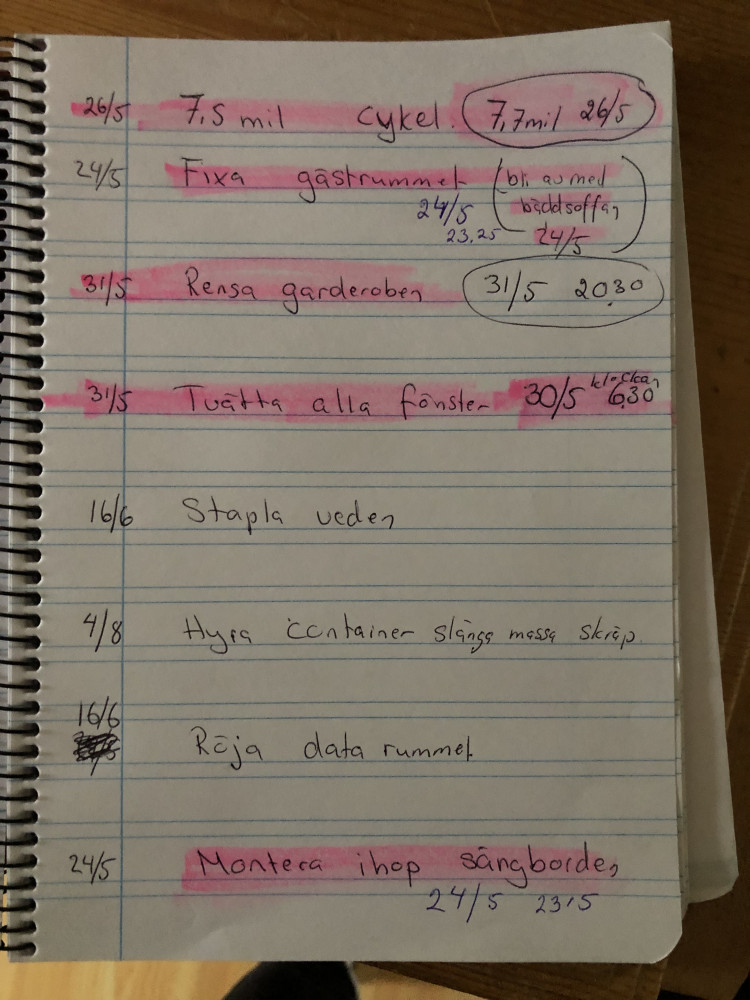 26/5 7,5 mil cykel. 7,7mil 26/5
24/5 Fixa gästrummet (bli av med
bäddsoffan
24/5)
24/5
23.25
31/5 Rensa garderoben 31/5 20.30
31/5 Tvätta alla fönster 30/5 klockan 6.30
16/6 Stapla veden
4/8 Hyra container slänga massa skräp.
16/6
Röja data rummet
24/5 Montera ihop sängborden
24/5 2315